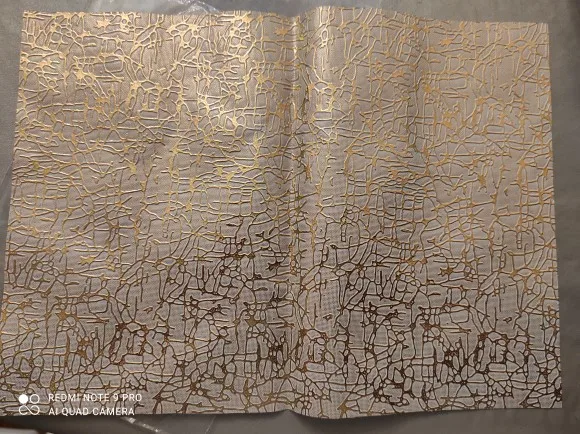 REDMI NOTE 9 PRO
AI QUAD CAMERA